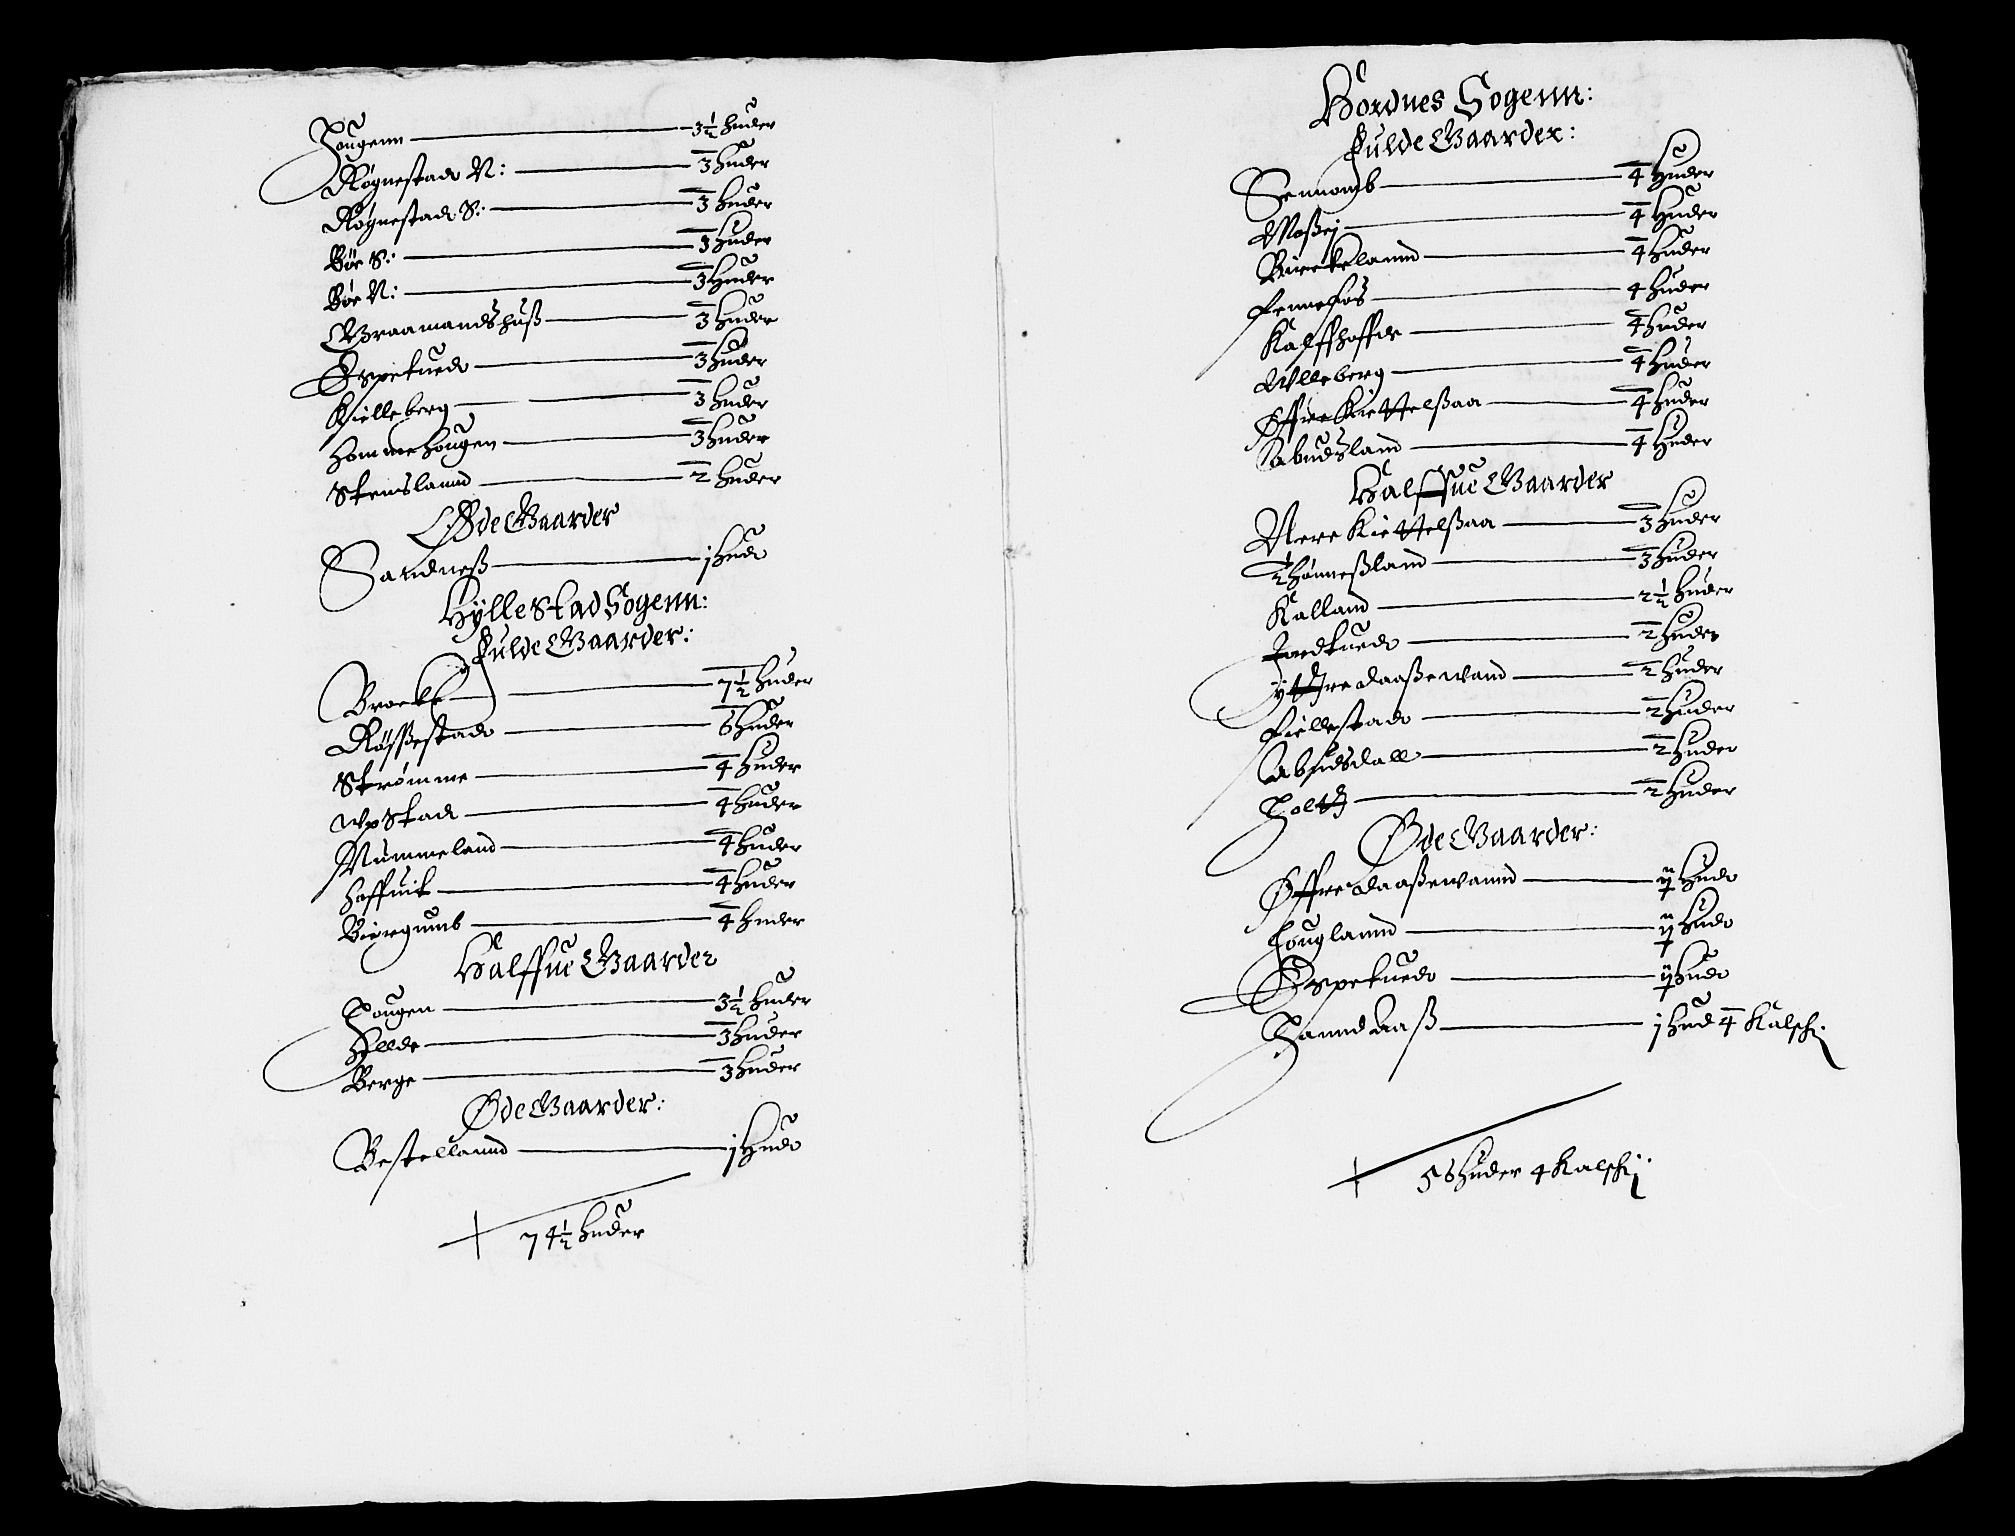 Hougenn 3½ huder
Røgnestadt N: 3 huder
Røgnestadt S: 3 huder
Bøe S: 3 huder
Bøe N: 3 huder
Graamandshuß 3 huder
Espetued 3 huder
Kielleberg 3 huder
Hommehougen 3 huder
Stenslannd 2 huder
Øde Gaarder
Sandneß j hud
Hylle Stad Sogenn:
Fulde Gaarder:
Brocke 7½ huder
Røßestad 6 huder
Strømme 4 huder
Wpstad 4 huder
Nummeland 4 huder
Haffuik 4 huder
Biørgumb 4 huder
Halffue Gaarder
Hougen 3½ huder
Hellde 3 huder
Berge 3 huder
Øde Gaarder:
Bestellannd j hud
74½ huder
Hordnes Sogenn:
Fulde Gaarder:
Sennomb 4 huder
Moßej 4 huder
Birckelannd 4 huder
Fennefos 4 huder
Kalffhoffde 4 huder
Wlleberg 4 huder
Øffre Kiettelßaa 4 huder
Abudsland 4 huder
Halffue Gaarder
Nere Kiettelßaa 3 huder
½ Hønneßland 3 huder
Kalland 2½ huder
Jordtued 2 huder
Yttre Daaßewand 2 huder
Fiellestad 2 huder
Abudsdall 2 huder
Holte 2 huder
Øde Gaarder:
Øffre Daaßewannd hud
Houglannd hud
Espetued hud
Hannd aaß j hud 4 Kalfsk:
56 huder 4 Kalfsk: